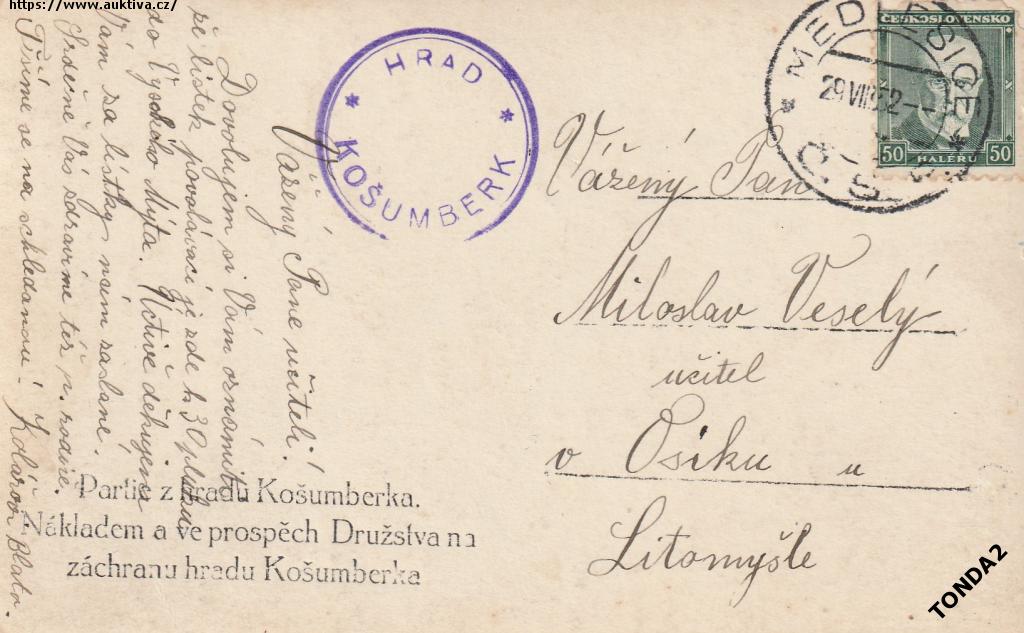 https://www.auktiva.cz/
HRAD
* KOŠUMBERK *
MEDLEŠICE
29.VIII.32.--
* Č.S.R. *
ČESKOSLOVENSKO
50 HALÉRŮ 50
Vážený Pane učiteli!
Dovolujem si Vám oznámiti
že lístek povolávací je zde k 30. pluku
do Vysokého Mýta. Uctivě děkujem
Vám za lístky nám zaslané.
Srdečně Vás zdravíme též p. rodiče.
Těšíme se na shledanou! Kolářovi Blato.
Partie z hradu Košumberka.
Nákladem a ve prospěch Družstva na
záchranu hradu Košumberka
Vážený Pan
Miloslav Veselý
učitel
v Osiku u
Litomyšle
TONDA2